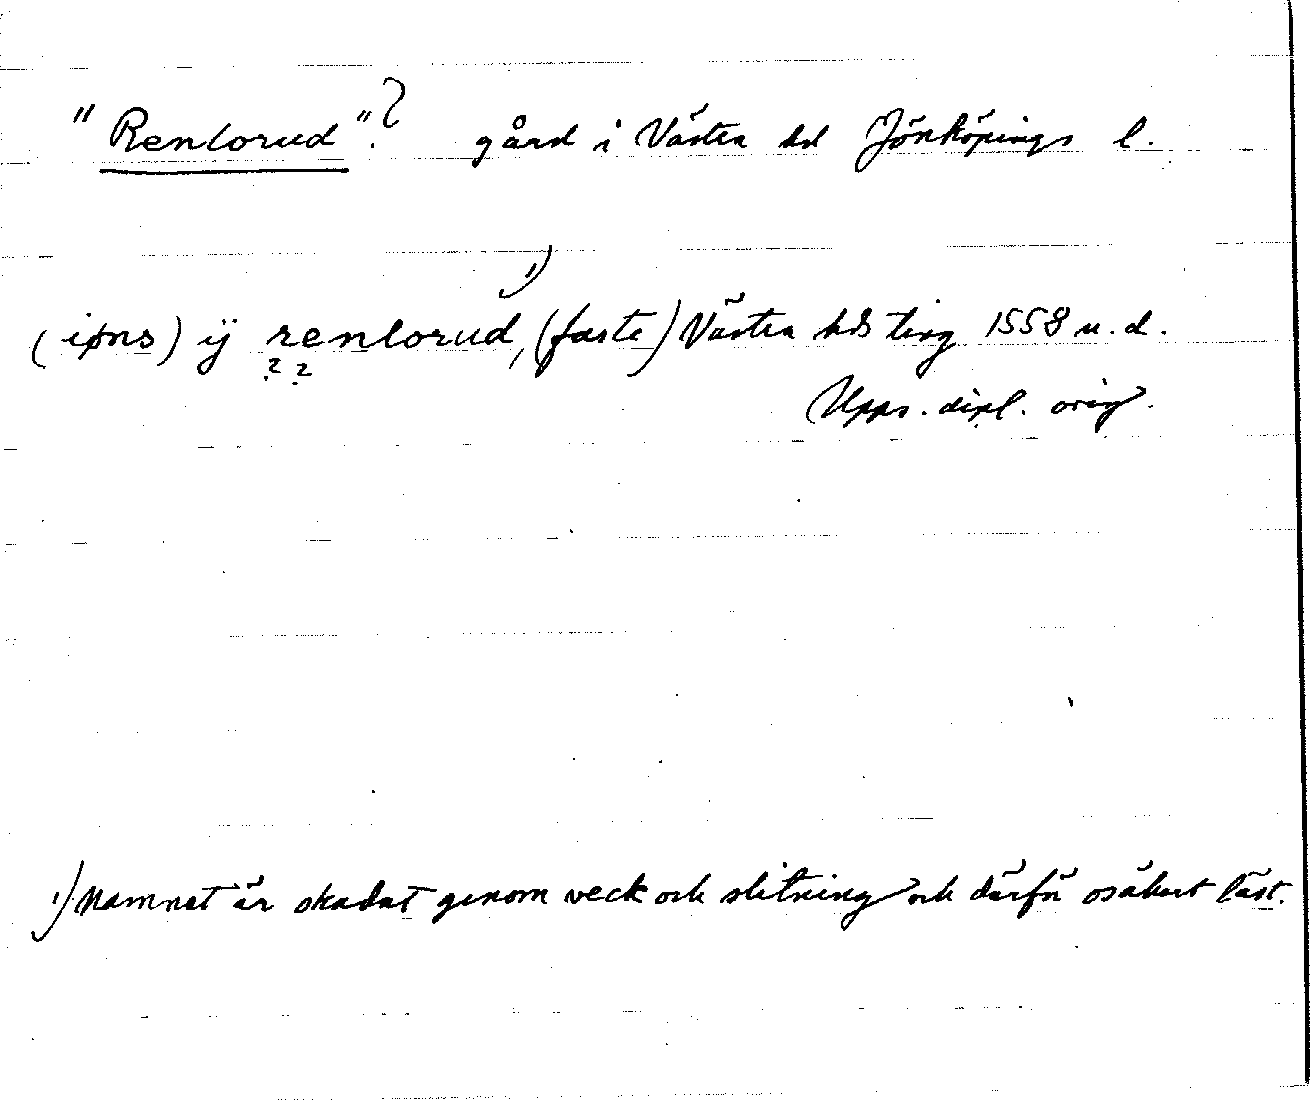 "Renlorud".? gård i Västra hd Jönköpings l.
(iøns) ij renlorud,¹⁾ (faste) Västra hds ting 1558 u.d.
? ?
Upps. dipl. orig.
¹⁾ Namnet är skadat genom veck och slitning och därför osäkert läst.